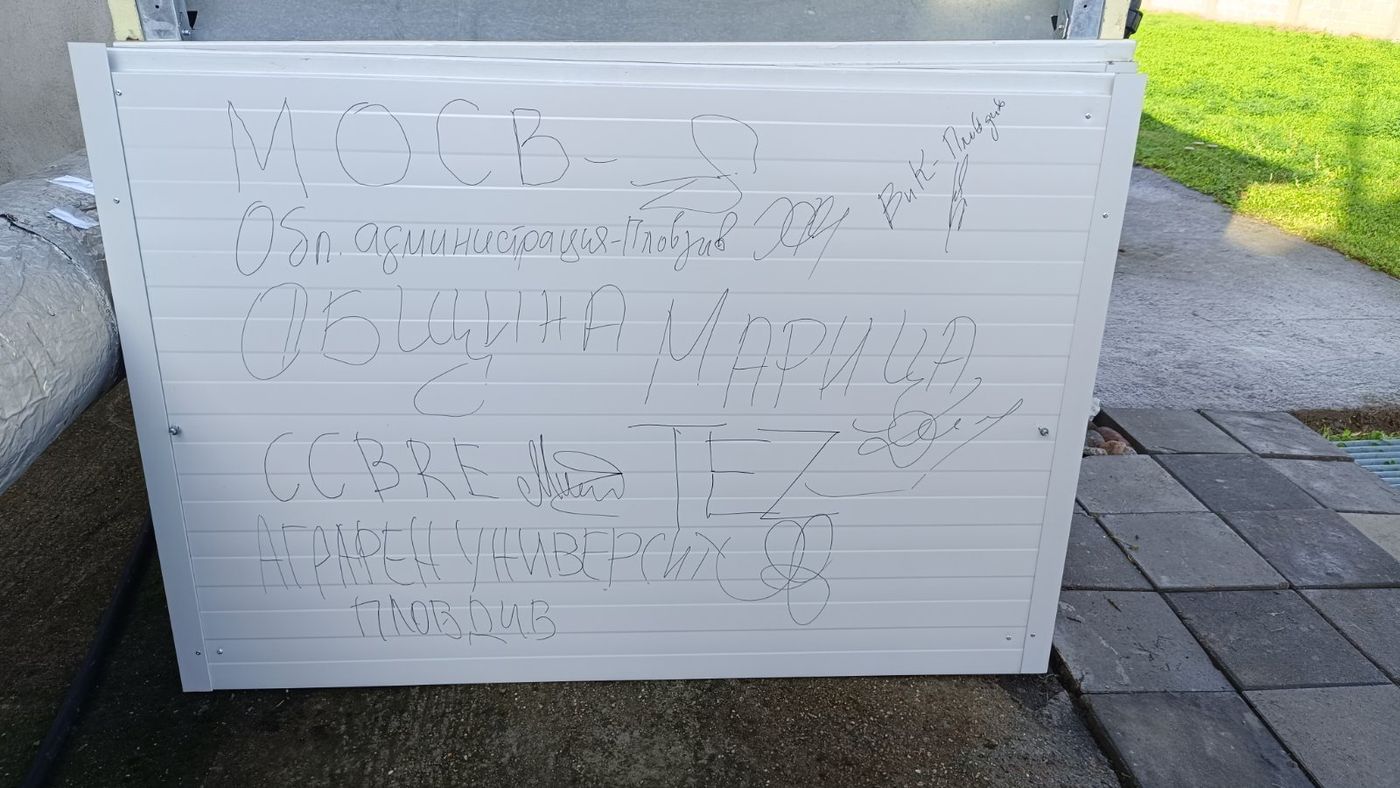 МОСВ -
ВиК - Пловдив
Обл. администрация - Пловдив
ОБЩИНА МАРИЦА
CCBRE TEZ
АГРАРЕН УНИВЕРСИТЕТ
ПЛОВДИВ